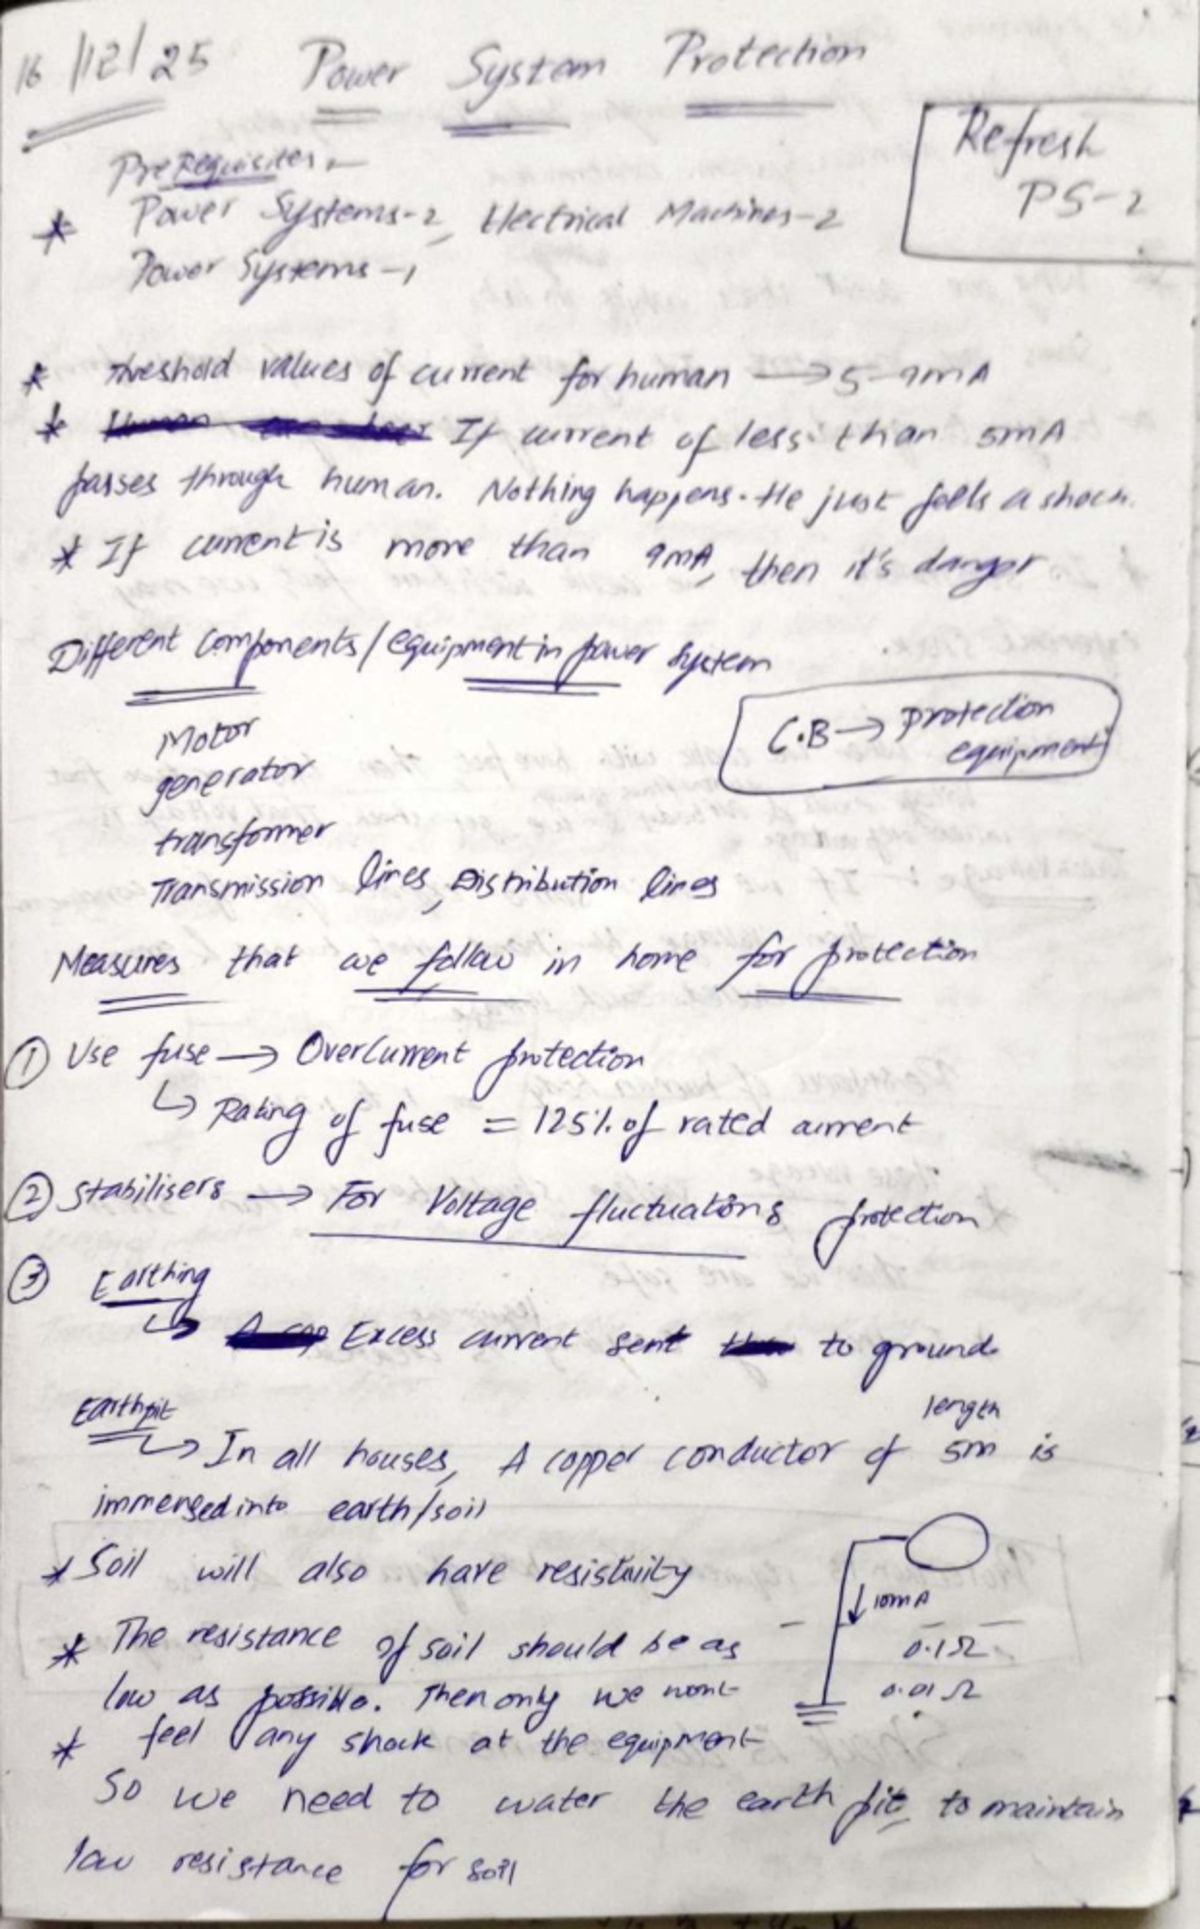 16/12/25 Power System Protection
Refresh
PS-2
PreRequisites :-
* Power Systems-2, Electrical Machines-2
Power Systems-1
* Threshold values of current for human → 5-9mA
* If current of less than 5mA
passes through human. Nothing happens. He just feels a shock.
* If current is more than 9mA, then it's danger
Different components/equipment in power system
C.B → Protection
equipment
Motor
generator
transformer
Transmission lines, Distribution lines
Measures that we follow in home for protection
① Use fuse → OverCurrent protection
↳ Rating of fuse = 125% of rated current
② Stabilisers → For Voltage fluctuations protection
③ Earthing
↳ Excess current sent to ground.
Earthpit
length
↳ In all houses, A copper conductor of 5m is
immersed into earth/soil
* Soil will also have resistivity
10mA
* The resistance of soil should be as
0.1Ω
low as possible. Then only we wont
0.01Ω
* feel any shock at the equipment
So we need to water the earth pit, to maintain
low resistance for soil